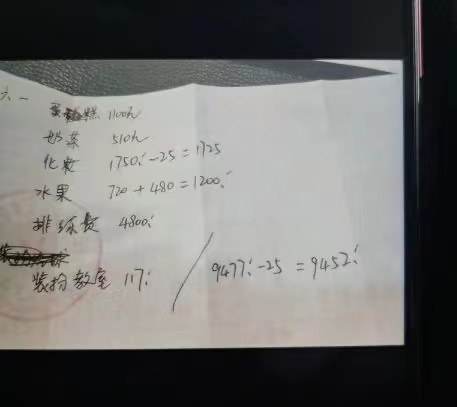 六一
蛋糕 1100元
奶茶 510元
化妆 1750元-25=1725
水果 720+480=1200元
排练费 4800元
装扮教室 117元
9477元-25=9452元